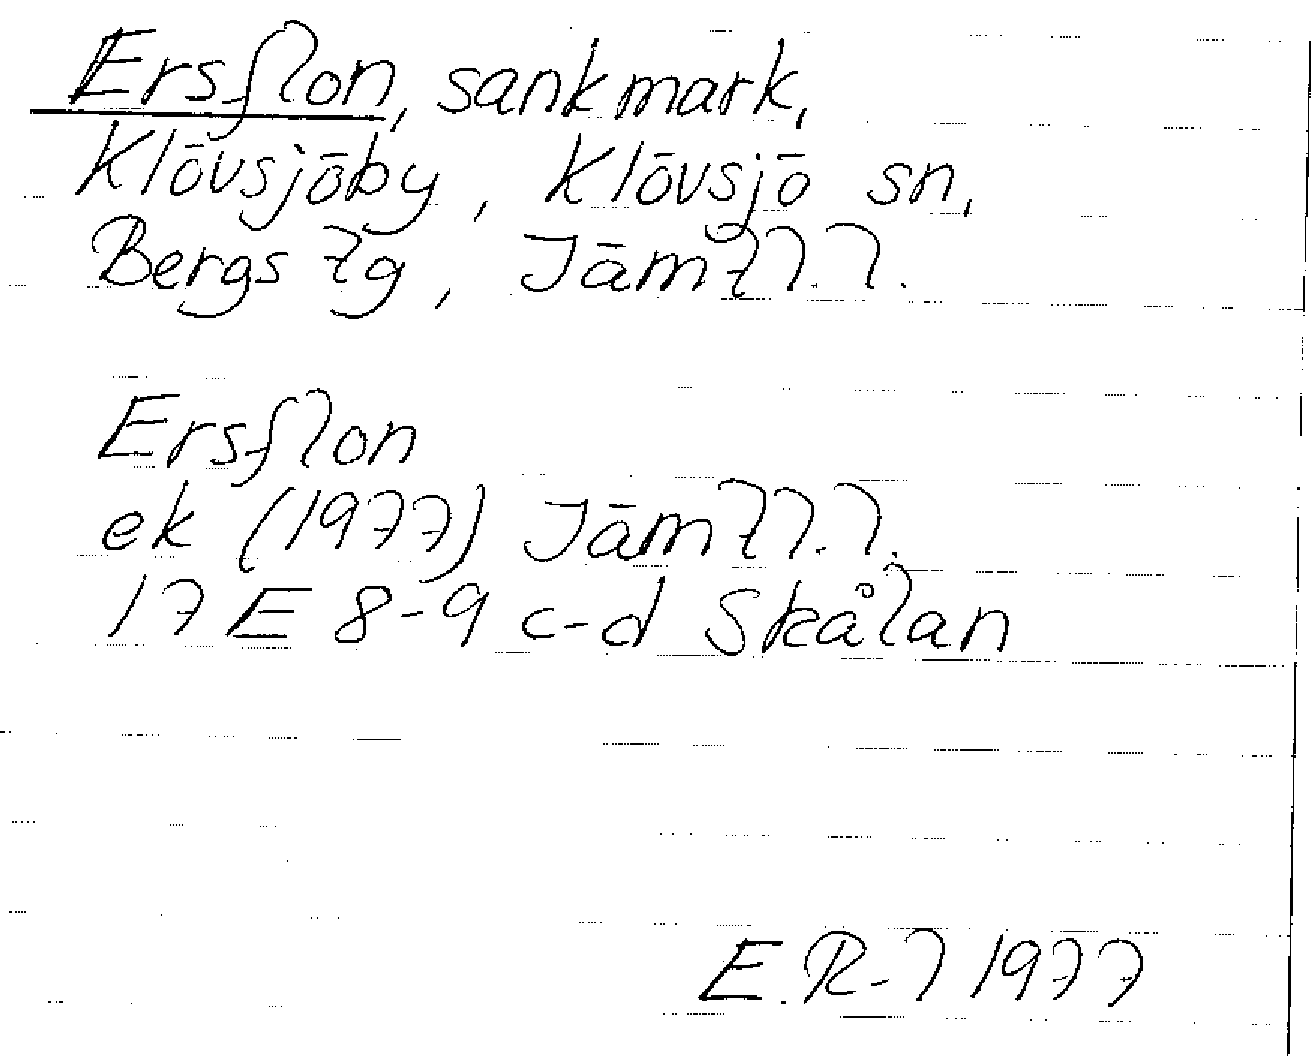 Ersflon, sankmark,
Klövsjöby, Klövsjö sn,
Bergs tg, Jämtl. l.
Ersflon
ek (1977) Jämtl. l.
17 E 8-9 c-d Skålan
E.R-l 1977